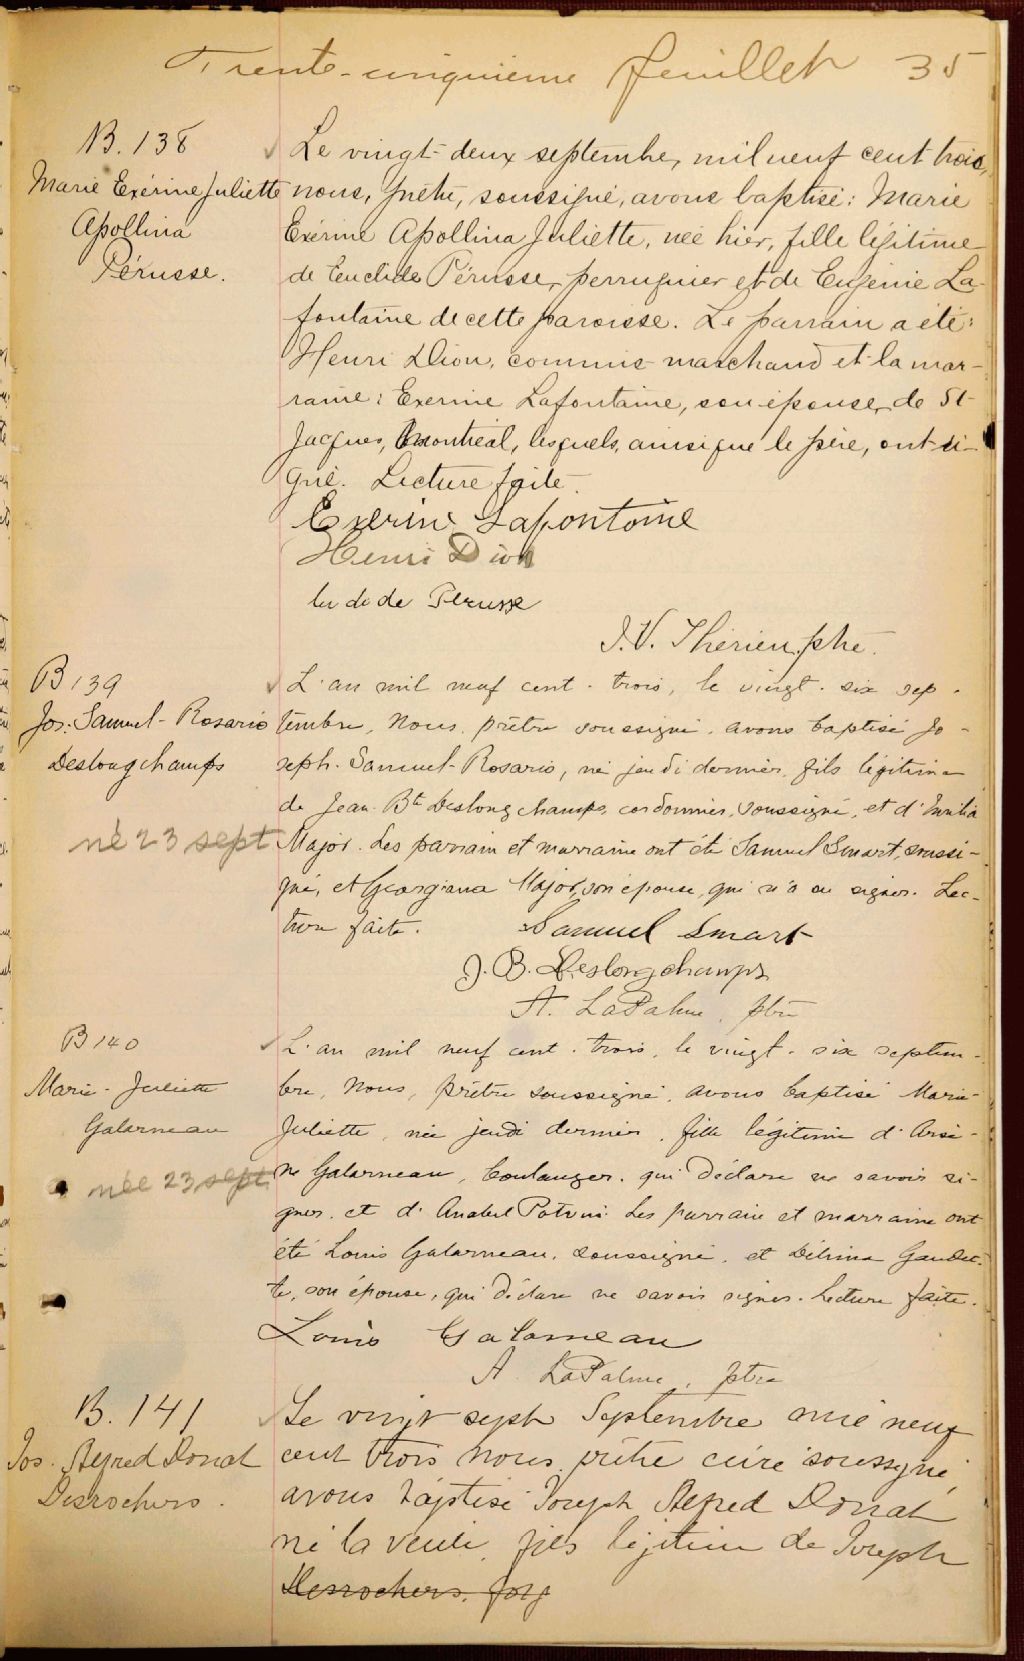 Trente-cinquième feuillet 35
B. 138
Marie Exérine Juliette
Apollina
Pérusse.
Le vingt-deux septembre, mil neuf cent trois,
nous, prêtre, soussigné, avons baptisé: Marie
Exérine Apollina Juliette, née hier, fille légitime
de Euclide Pérusse, perruquier et de Eugénie La-
fontaine de cette paroisse. Le parrain a été:
Henri Dion, commis-marchand et la mar-
raine: Exerine Lafontaine, son épouse, de St-
Jacques, Montréal, lesquels, ainsi que le père, ont si-
gné. Lecture faite.
Exerine Lafontaine
Henri Dion
Perusse
J. V. Therien, ptre.
B 139
Jos: Samuel-Rosario
Deslongchamps
né 23 sept
L'an mil neuf cent-trois, le vingt-six sep-
tembre, Nous, prêtre soussigné, avons baptisé Jo-
seph-Samuel-Rosario, né jeudi dernier, fils légitime
de Jean-Bte Deslongchamps, cordonnier, soussigné, et d'Emilia
Major. Les parrain et marraine ont été Samuel Smart, soussi-
gné, et Georgiana Major, son épouse, qui n'a su signer. Lec-
ture faite.
Samuel Smart
J. B. Deslongchamps
A. LaPalme, ptre
B 140
Marie-Juliette
Galarneau
née 23 sept
L'an mil neuf cent-trois, le vingt-six septem-
bre, Nous, prêtre soussigné, avons baptisé Marie-
Juliette, née jeudi dernier, fille légitime d'Arsè-
ne Galarneau, boulanger, qui déclare ne savoir si-
gner, et d'Anabel Potvin. Les parrain et marraine ont
été Louis Galarneau, soussigné, et Délima Gaudet-
te, son épouse, qui déclare ne savoir signer. Lecture faite.
Louis Galarneau
A. LaPalme, ptre
B. 141
Jos. Alfred Donat
Desrochers.
Le vingt sept Septembre mil neuf
cent trois nous prêtre curé soussigné,
avons baptisé Joseph Alfred Donat
né la veille, fils légitime de Joseph
Desrochers, forg